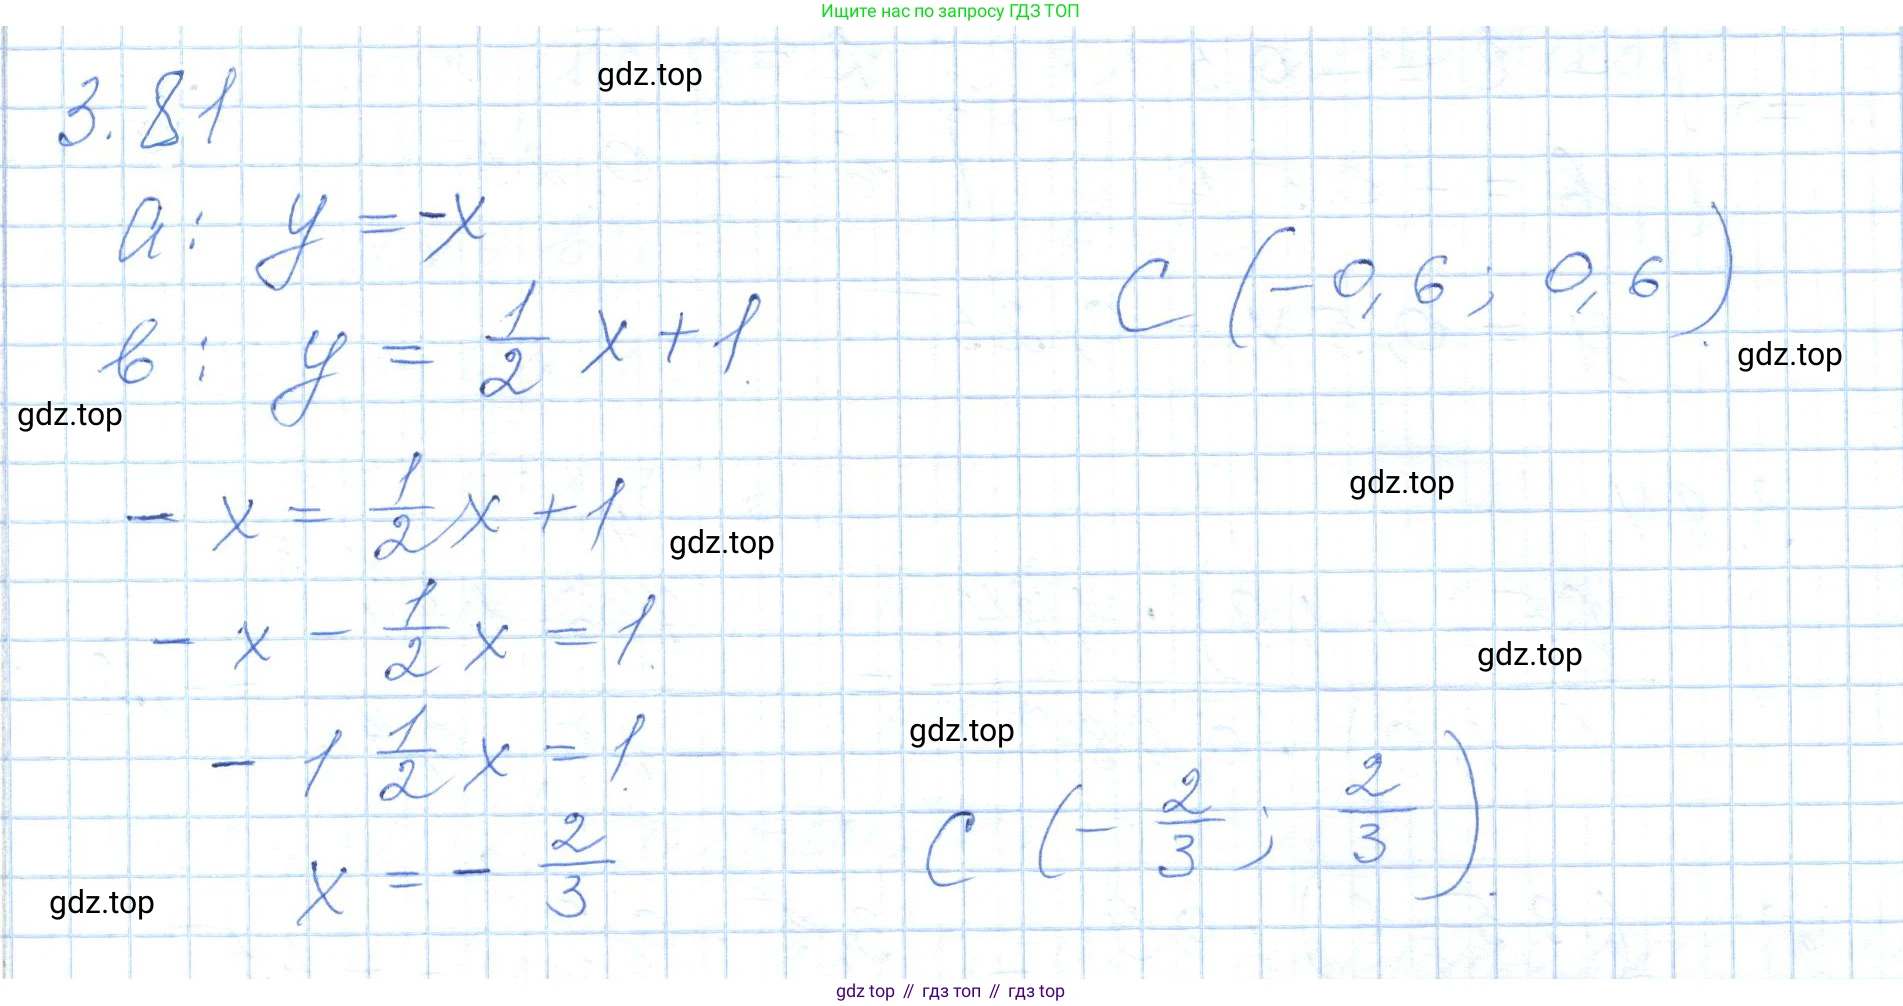 Ищите нас по запросу ГДЗ ТОП
gdz.top
3.81
a: y = -x
C (-0,6; 0,6).
gdz.top
в: y = 1/2 x + 1.
gdz.top
- x = 1/2 x + 1
gdz.top
gdz.top
- x - 1/2 x = 1.
gdz.top
- 1 1/2 x = 1.
gdz.top
x = - 2/3
C (- 2/3; 2/3).
gdz.top
gdz top // гдз топ // гдз top